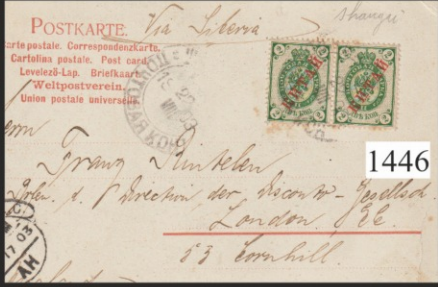 POSTKARTE.
Via Siberia
shangri
Carte postale. Correspondenzkarte.
Cartolina postale. Post card.
Levelező-Lap. Briefkaart.
Weltpostverein.
Union postale universelle.
КИТАЙ
КИТАЙ
1446
Herrn
Franz Rintelen
d. Direction der Disconto-Gesellsch.
London. E.C.
53 Cornhill.
17 03